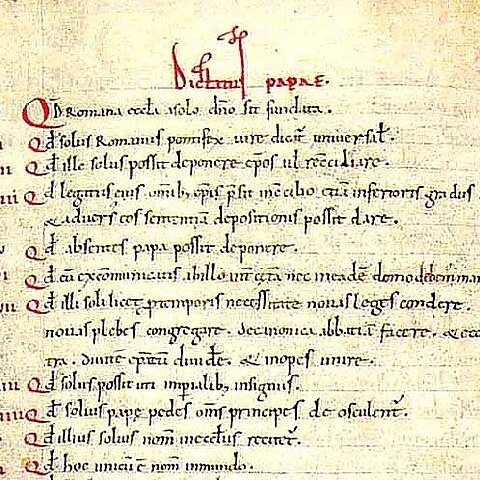 Dictatus papae.
QD Romana eccła a solo dño sit fundata.
Qd solus Romanus pontifex iure dicat̃ universał.
ii Qd ille solus possit deponere ep̃os vł recc̃iliare.
iii Qd legatus eius omĩb; ep̃is p̃sit in c̃cilio etiã inferioris gradus
& advers̃ eos sententiã depositionis possit dare.
v Qd absentes papa possit deponere.
vi Qd cũ excõmunicatis ab illo int̃ c̃tã nec in eadẽ domo debem̃ ma
vii Qd illi soli licet p̃ temporis necessitate novas leges condere.
novas plebes congregare. de canonica abbatiã facere. & e c̃
tra. divitẽ ep̃atũ divide̅. & inopes unire.
viii Qd solus possit uti imp̃ialib; insigniis.
viiii Qd solius papę pedes om̃s principes deosculent̃.
x Qd illius solius nom̃ in ecclesiis recitet̃.
xi Qd hoc unicũ ẽ nom̃ in mundo.